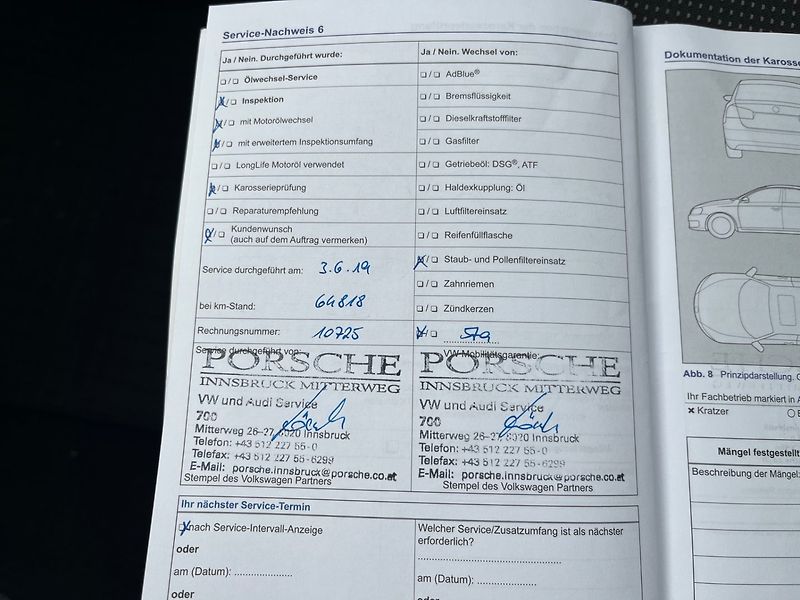 Service-Nachweis 6
Ja / Nein. Durchgeführt wurde:
Ölwechsel-Service
Inspektion
mit Motorölwechsel
mit erweitertem Inspektionsumfang
LongLife Motoröl verwendet
Karosserieprüfung
Reparaturempfehlung
Kundenwunsch
(auch auf dem Auftrag vermerken)
Service durchgeführt am: 3.6.19
bei km-Stand: 64818
Rechnungsnummer: 10725
Service durchgeführt von:
PORSCHE
INNSBRUCK MITTERWEG
VW und Audi Service
700
Mitterweg 26-27, 6020 Innsbruck
Telefon: +43 512 227 55-0
Telefax: +43 512 227 55-6299
E-Mail: porsche.innsbruck@porsche.co.at
Stempel des Volkswagen Partners
Ja / Nein. Wechsel von:
AdBlue®
Bremsflüssigkeit
Dieselkraftstofffilter
Gasfilter
Getriebeöl: DSG®, ATF
Haldexkupplung: Öl
Luftfiltereinsatz
Reifenfüllflasche
Staub- und Pollenfiltereinsatz
Zahnriemen
Zündkerzen
VW-Mobilitätsgarantie:
PORSCHE
INNSBRUCK MITTERWEG
VW und Audi Service
700
Mitterweg 26-27, 6020 Innsbruck
Telefon: +43 512 227 55-0
Telefax: +43 512 227 55-6299
E-Mail: porsche.innsbruck@porsche.co.at
Stempel des Volkswagen Partners
Ihr nächster Service-Termin
nach Service-Intervall-Anzeige
oder
am (Datum): ....................
oder
Welcher Service/Zusatzumfang ist als nächster
erforderlich?
am (Datum): ....................
oder
Dokumentation der
Abb. 8 Prinzipdarstellung.
Ihr Fachbetrieb markiert in
× Kratzer
Mängel festgestellt
Beschreibung der Mängel: